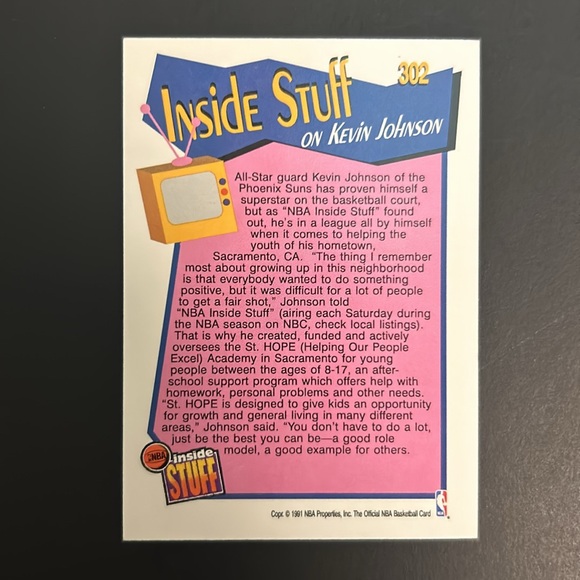 302
Inside Stuff
on Kevin Johnson
All-Star guard Kevin Johnson of the
Phoenix Suns has proven himself a
superstar on the basketball court,
but as “NBA Inside Stuff” found
out, he's in a league all by himself
when it comes to helping the
youth of his hometown,
Sacramento, CA. “The thing I remember
most about growing up in this neighborhood
is that everybody wanted to do something
positive, but it was difficult for a lot of people
to get a fair shot,” Johnson told
“NBA Inside Stuff” (airing each Saturday during
the NBA season on NBC, check local listings).
That is why he created, funded and actively
oversees the St. HOPE (Helping Our People
Excel) Academy in Sacramento for young
people between the ages of 8-17, an after-
school support program which offers help with
homework, personal problems and other needs.
“St. HOPE is designed to give kids an opportunity
for growth and general living in many different
areas,” Johnson said. “You don't have to do a lot,
just be the best you can be—a good role
model, a good example for others.
NBA
inside
STUFF
Copr. © 1991 NBA Properties, Inc. The Official NBA Basketball Card